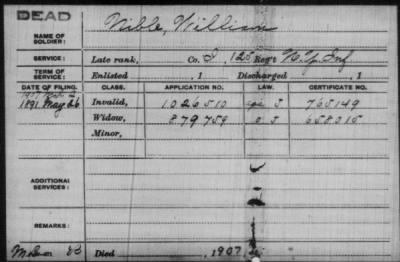 DEAD
NAME OF SOLDIER: Nible, William
SERVICE: Late rank, Co. I 125 Reg't N.Y. Inf
TERM OF SERVICE: Enlisted , 1 Discharged , 1
DATE OF FILING. CLASS. APPLICATION NO. LAW. CERTIFICATE NO.
1891 May 26 Invalid, 1026510 765149
Widow, 879759 658015
Minor,
ADDITIONAL SERVICES:
REMARKS:
Died , 1907